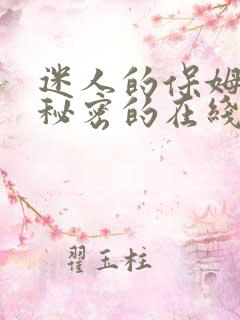 迷人的保姆
秘密的在线
翟玉柱